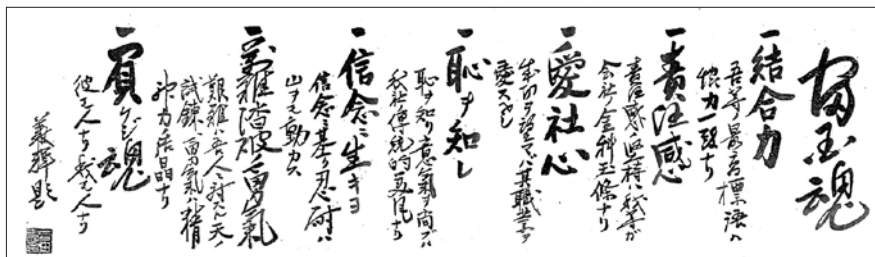 富国魂
一結合力
吾等ノ最高標語ハ
協力一致ナリ
一責任感
責任感ノ堅持ハ我等ガ
会社ノ金科玉條ナリ
一愛社心
成功ヲ望マバ其職業ヲ
愛スベシ
一恥ヲ知レ
恥ヲ知リ意気ヲ尚ブハ
我社伝統的美風ナリ
一信念ニ生キヨ
信念ニ基ク忍耐ハ
山ヲモ動カス
一万難踏破ノ勇氣
艱難ハ吾人ニ対スル天ノ
試錬ニシテ勇氣ハ精
神力ノ結晶ナリ
一負ケジ魂
彼モ人ナリ我モ人ナリ
義輝題